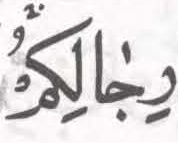 رِجَالِكُمْ